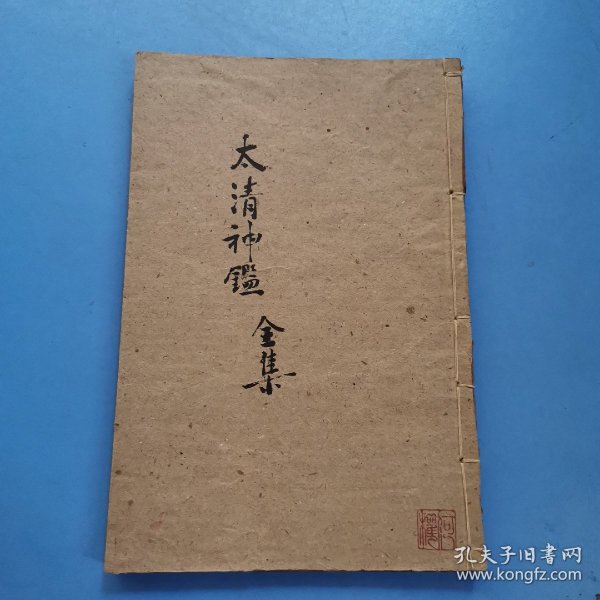 太清神鑑
全集
孔夫子旧书网
www.kongfz.com